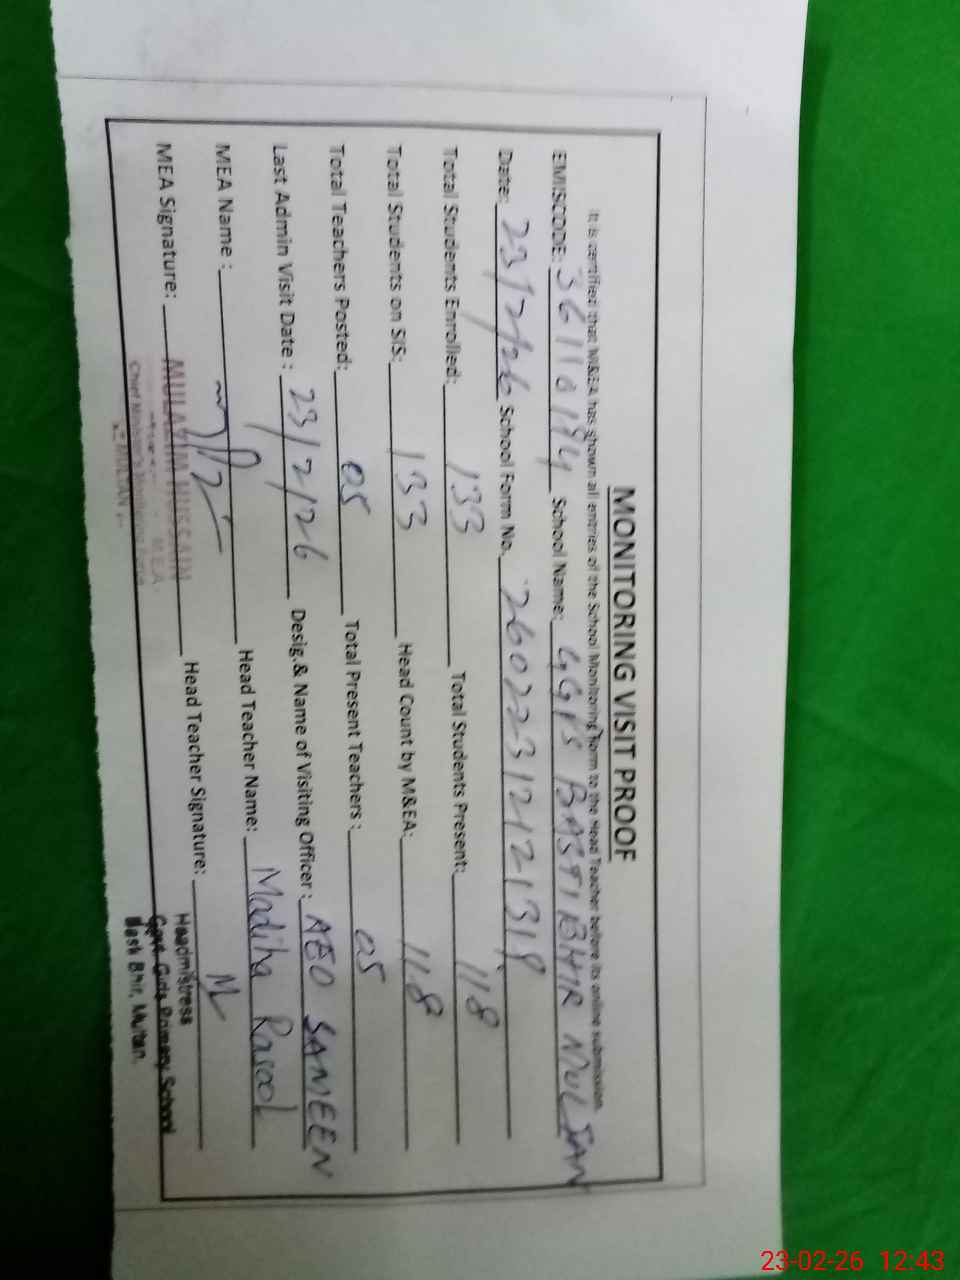 MONITORING VISIT PROOF
It is certified that M&EA has shown all entries of the School Monitoring Form to the Head Teacher before its online submission.
EMISCODE: 36110194 School Name: GGPS BASTI BHIR MULTAN
Date: 23/2/26 School Form No. 26022312121319
Total Students Enrolled: 133 Total Students Present: 118
Total Students on SIS: 133 Head Count by M&EA: 118
Total Teachers Posted: 05 Total Present Teachers: 05
Last Admin Visit Date : 23/2/26 Desig.& Name of Visiting Officer : AEO SAMEEN
MEA Name : Head Teacher Name: Madiha Rasool
MEA Signature: Head Teacher Signature:
MULAZIM HUSSAIN
MEA
Chief Minister's Monitoring Force
MULTAN
Headmistress
Govt. Girls Primary School
Basti Bhir, Multan.
23-02-26 12:43